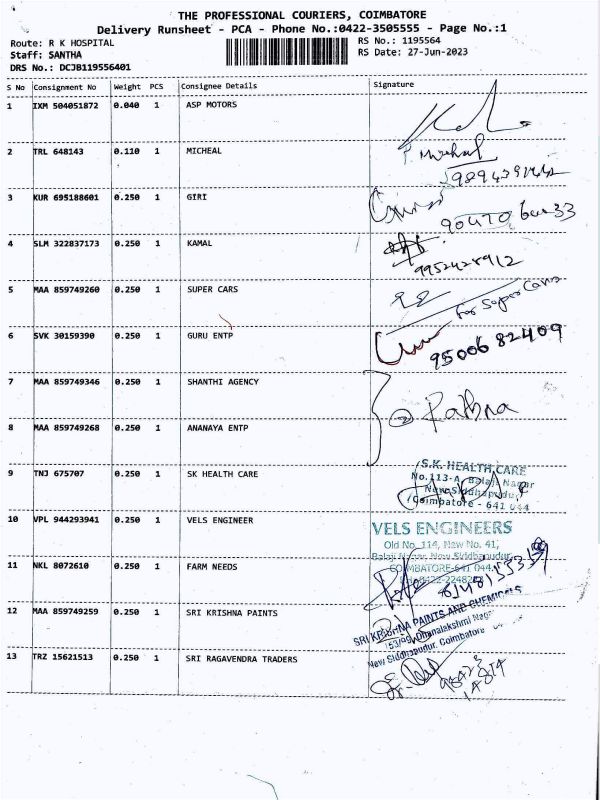 THE PROFESSIONAL COURIERS, COIMBATORE
Delivery Runsheet - PCA - Phone No.:0422-3505555 - Page No.:1
Route: R K HOSPITAL
Staff: SANTHA
DRS No.: DCJB119556401
RS No.: 1195564
RS Date: 27-Jun-2023
S No Consignment No Weight PCS Consignee Details Signature
1 IXM 504051872 0.040 1 ASP MOTORS
2 TRL 648143 0.110 1 MICHEAL
P Micheal
3 KUR 695188601 0.250 1 GIRI
4 SLM 322837173 0.250 1 KAMAL
9952428912
5 MAA 859749260 0.250 1 SUPER CARS
For Super Cars
6 SVK 30159390 0.250 1 GURU ENTP
9500682409
7 MAA 859749346 0.250 1 SHANTHI AGENCY
8 MAA 859749268 0.250 1 ANANAYA ENTP
9 TNJ 675707 0.250 1 SK HEALTH CARE
S.K. HEALTH CARE
No.113-A, Balaji Nagar
New Siddhapudur
Coimbatore - 641 044
10 VPL 944293941 0.250 1 VELS ENGINEER
VELS ENGINEERS
Old No. 114, New No. 41,
Balaji Nagar, New Siddhapudur,
COIMBATORE-641 044.
11 NKL 8072610 0.250 1 FARM NEEDS
12 MAA 859749259 0.250 1 SRI KRISHNA PAINTS
SRI KRISHNA PAINTS AND CHEMICALS
Dhanalakshmi Nagar
New Siddhapudur, Coimbatore
13 TRZ 15621513 0.250 1 SRI RAGAVENDRA TRADERS